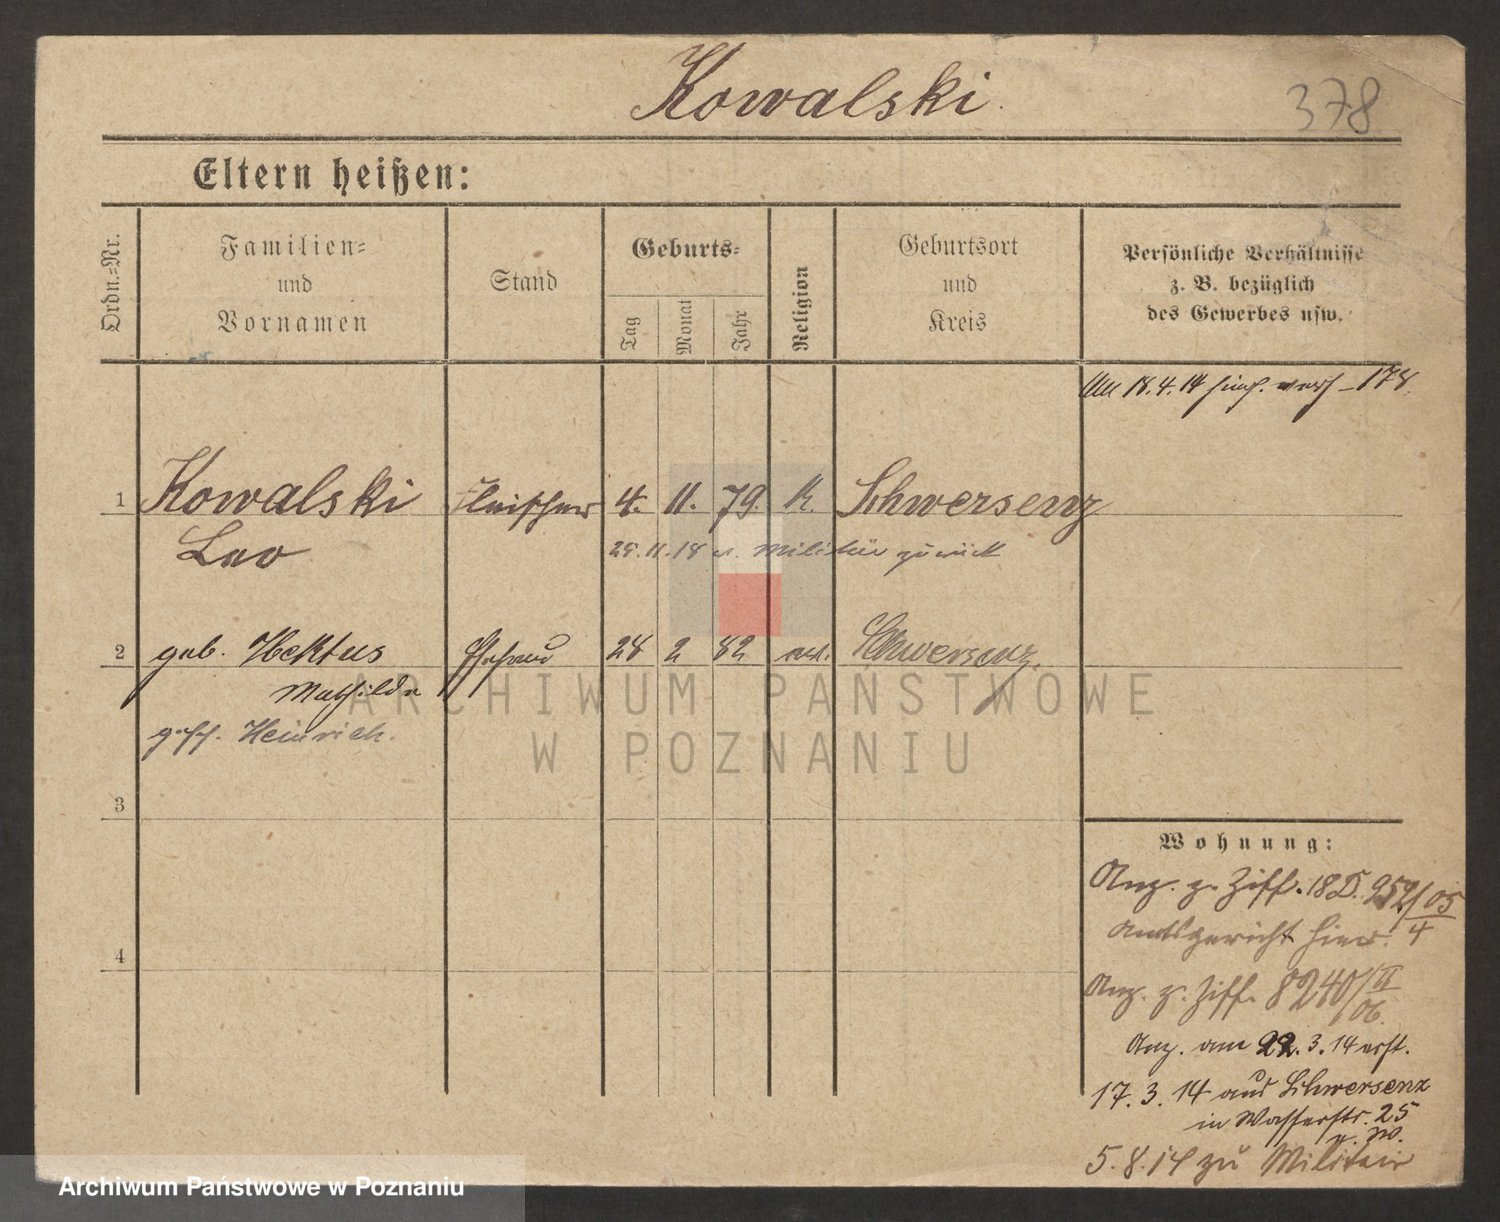 Kowalski
378
Eltern heißen:
Ordn.=Nr.
Familien=
und
Vornamen
Stand
Geburts=
Tag
Monat
Jahr
Religion
Geburtsort
und
Kreis
Persönliche Verhältnisse
z. B. bezüglich
des Gewerbes usw.
Am 18.4.14 178
1 Kowalski Fleischer 4. 11. 79. K. Schwersenz
Leo
25.11.18 v. Militär zurück
2 geb. Hektus Ehefrau 28 2 82 Schwersenz.
Mathilde
gesch. Heinrich.
3
4
Wohnung:
Anz. z. Ziff. 18 D. 952/05
Amtsgericht hier. 4
Anz. z. Ziff. 8240/II
06.
Anz. am 22.3.14 erst.
17.3.14 aus Schwersenz
in Wasserstr. 25
5.8.14 zu Militair
ARCHIWUM PAŃSTWOWE
W POZNANIU
Archiwum Państwowe w Poznaniu